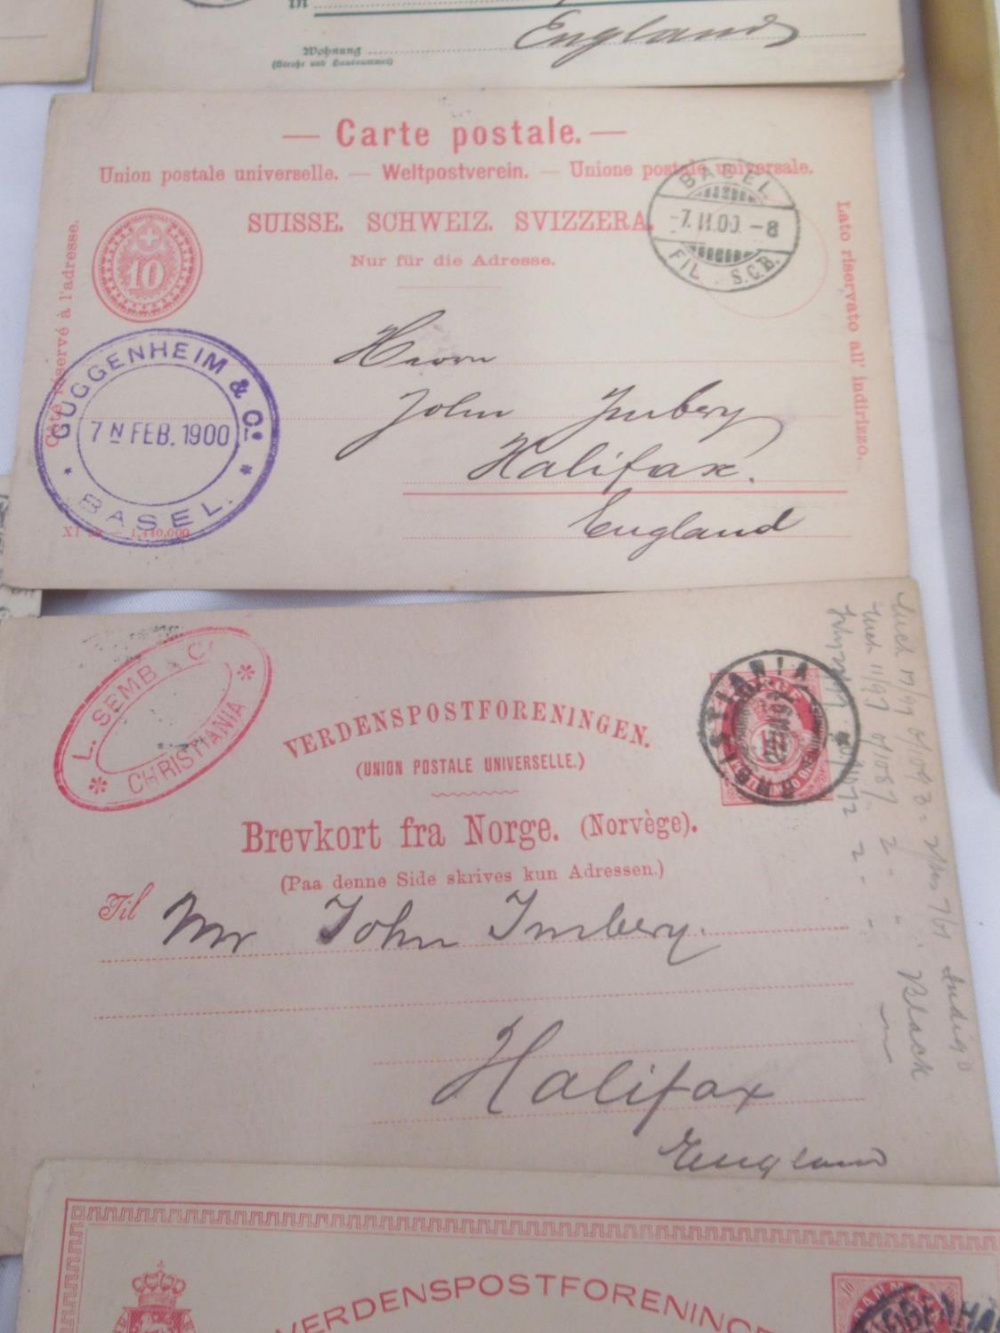 in
England
Wohnung
(Straße und Hausnummer)
— Carte postale. —
Union postale universelle. — Weltpostverein. — Unione postale universale.
SUISSE. SCHWEIZ. SVIZZERA.
Nur für die Adresse.
Côté réservé à l'adresse.
Lato riservato all' indirizzo.
10
BASEL
-7.II.00.-8
FIL. S.C.B.
GUGGENHEIM & Co.
7 N FEB. 1900
* BASEL. *
Herrn
John Imbery
Halifax.
England
1,440,000
L. SEMB & Co
* CHRISTIANIA *
VERDENSPOSTFORENINGEN.
(UNION POSTALE UNIVERSELLE.)
Brevkort fra Norge. (Norvège).
(Paa denne Side skrives kun Adressen.)
Til Mr John Imbery.
Halifax
England
CHRISTIANIA
Indigo
Black
VERDENSPOSTFORENINGEN
KJØBENHAVN